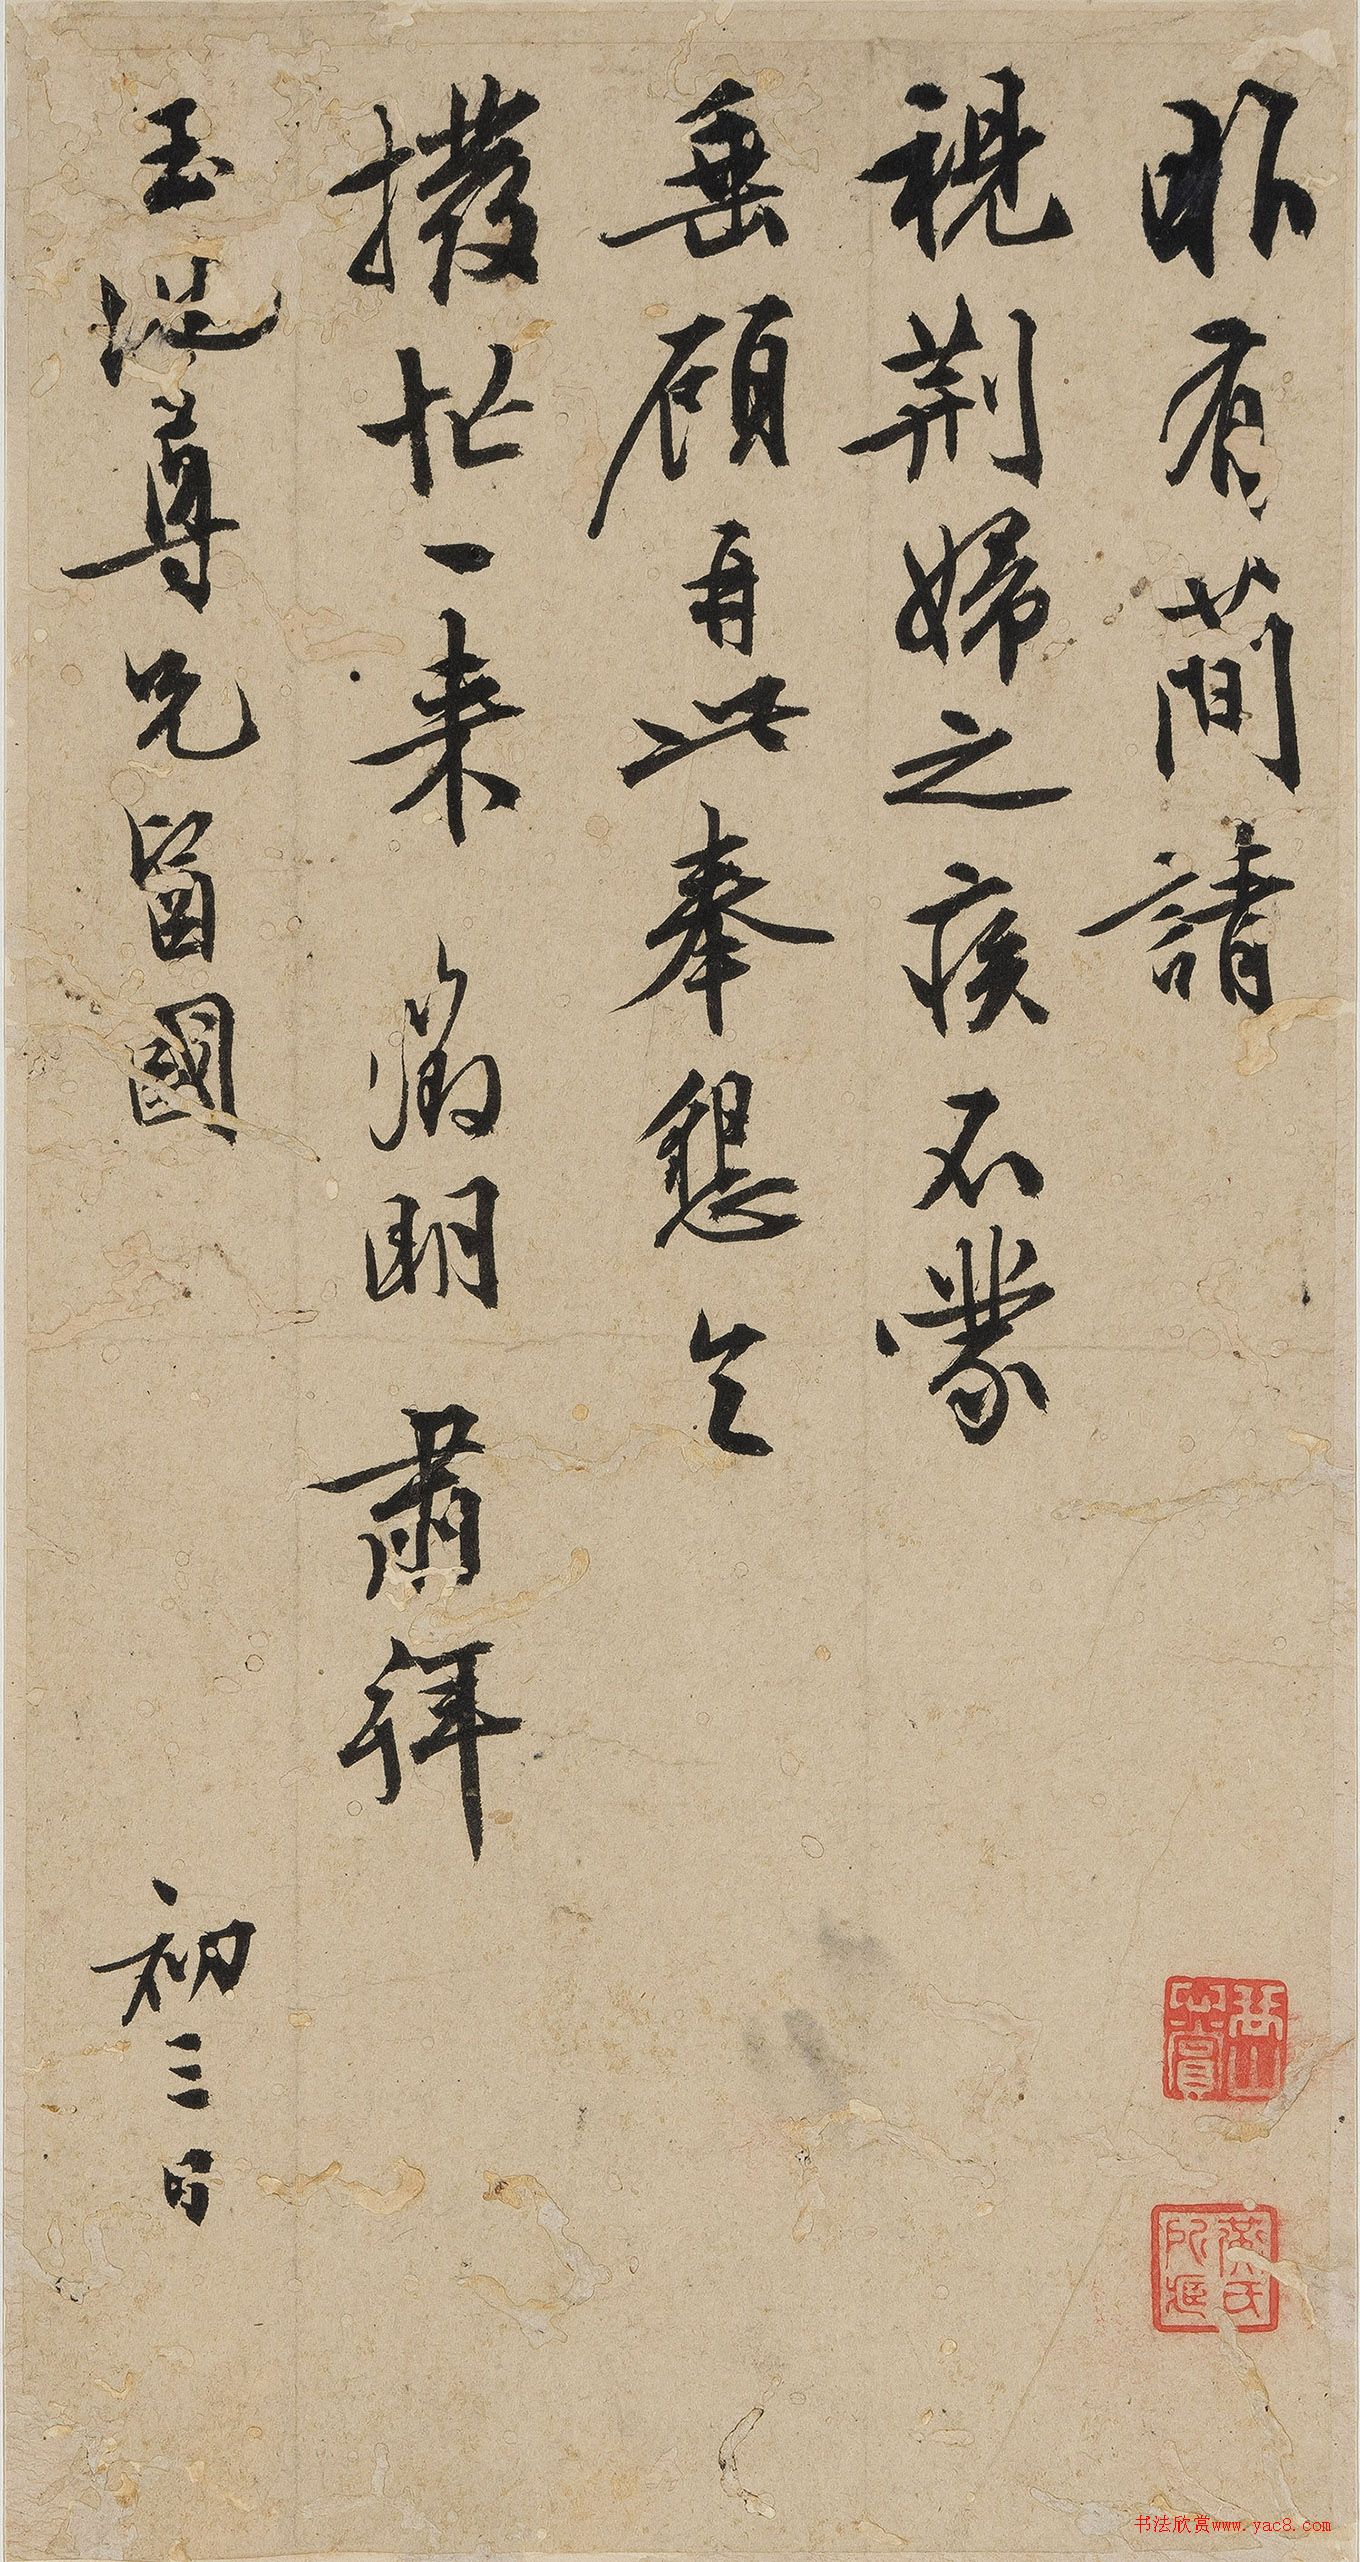 昨有簡請
視荊婦之疾不蒙
垂顧再此奉懇乞
撥忙一來 徵明肅拜
玉池尊兄留國 初三日
书法欣赏www.yac8.com